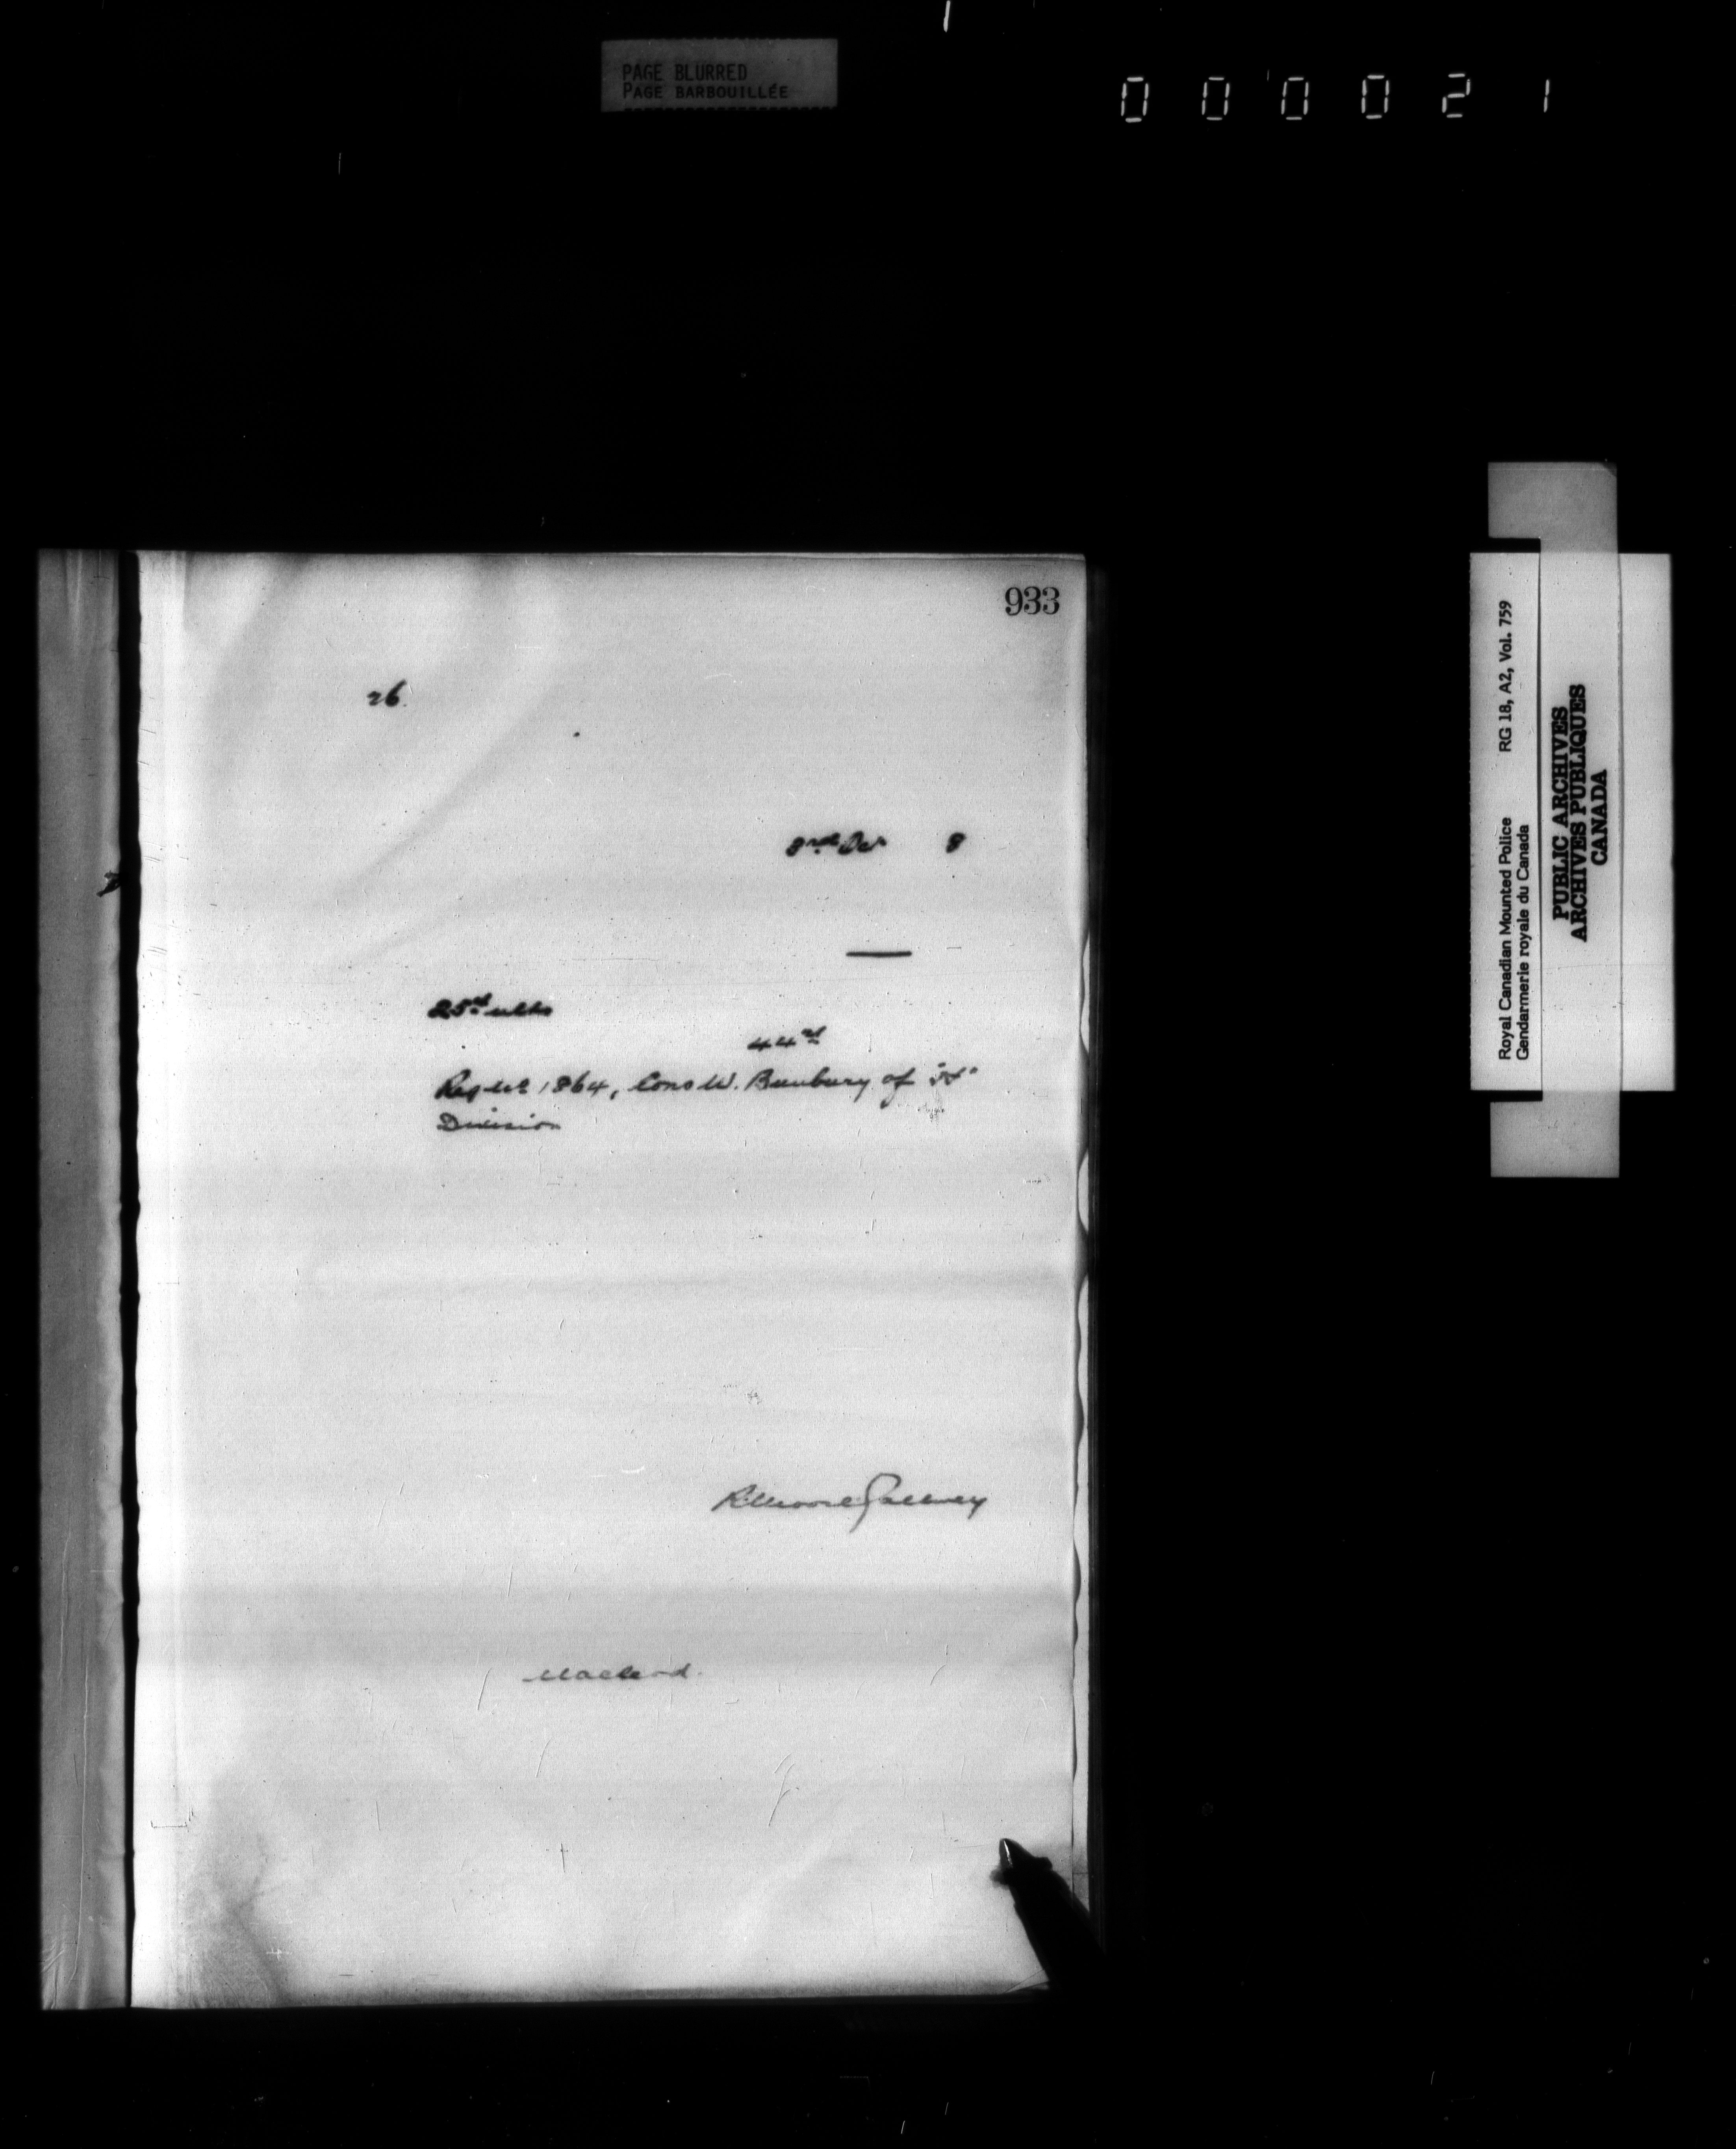 PAGE BLURRED
PAGE BARBOUILLÉE
000021
933
26
3rd Oct 8
25th ulto
44th
Reg No 1864, Cons W. Bunbury of "H"
Division
R. Moore Galwey
Macleod.
Royal Canadian Mounted Police RG 18, A2, Vol. 759
Gendarmerie royale du Canada
PUBLIC ARCHIVES
ARCHIVES PUBLIQUES
CANADA